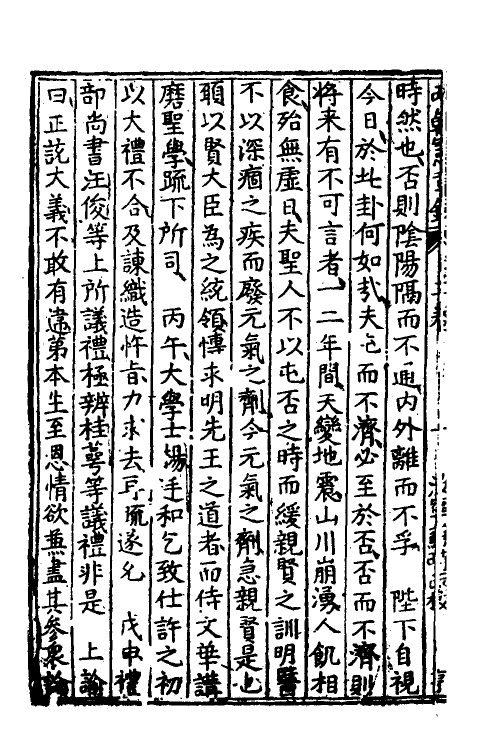 時然也否則陰陽隔而不通内外離而不孚　陛下自視
今日於此卦何如哉夫屯而不濟必至於否否而不濟則
将来有不可言者一二年間天變地震山川崩湧人飢相
食殆無虛日夫聖人不以屯否之時而緩親賢之訓明醫
不以深痼之疾而廢元氣之劑今元氣之劑急親賢是也
願以賢大臣為之統領博求明先王之道者而侍文華講
磨聖學疏下所司　丙午大學士楊廷和乞致仕許之初
以大禮不合及諫織造忤㫖力求去可疏遂允　戊申禮
部尚書汪俊等上所議禮極辨桂萼等議禮非是　上諭
曰正說大義不敢有違第本生至恩情欲兼盡其參衆論